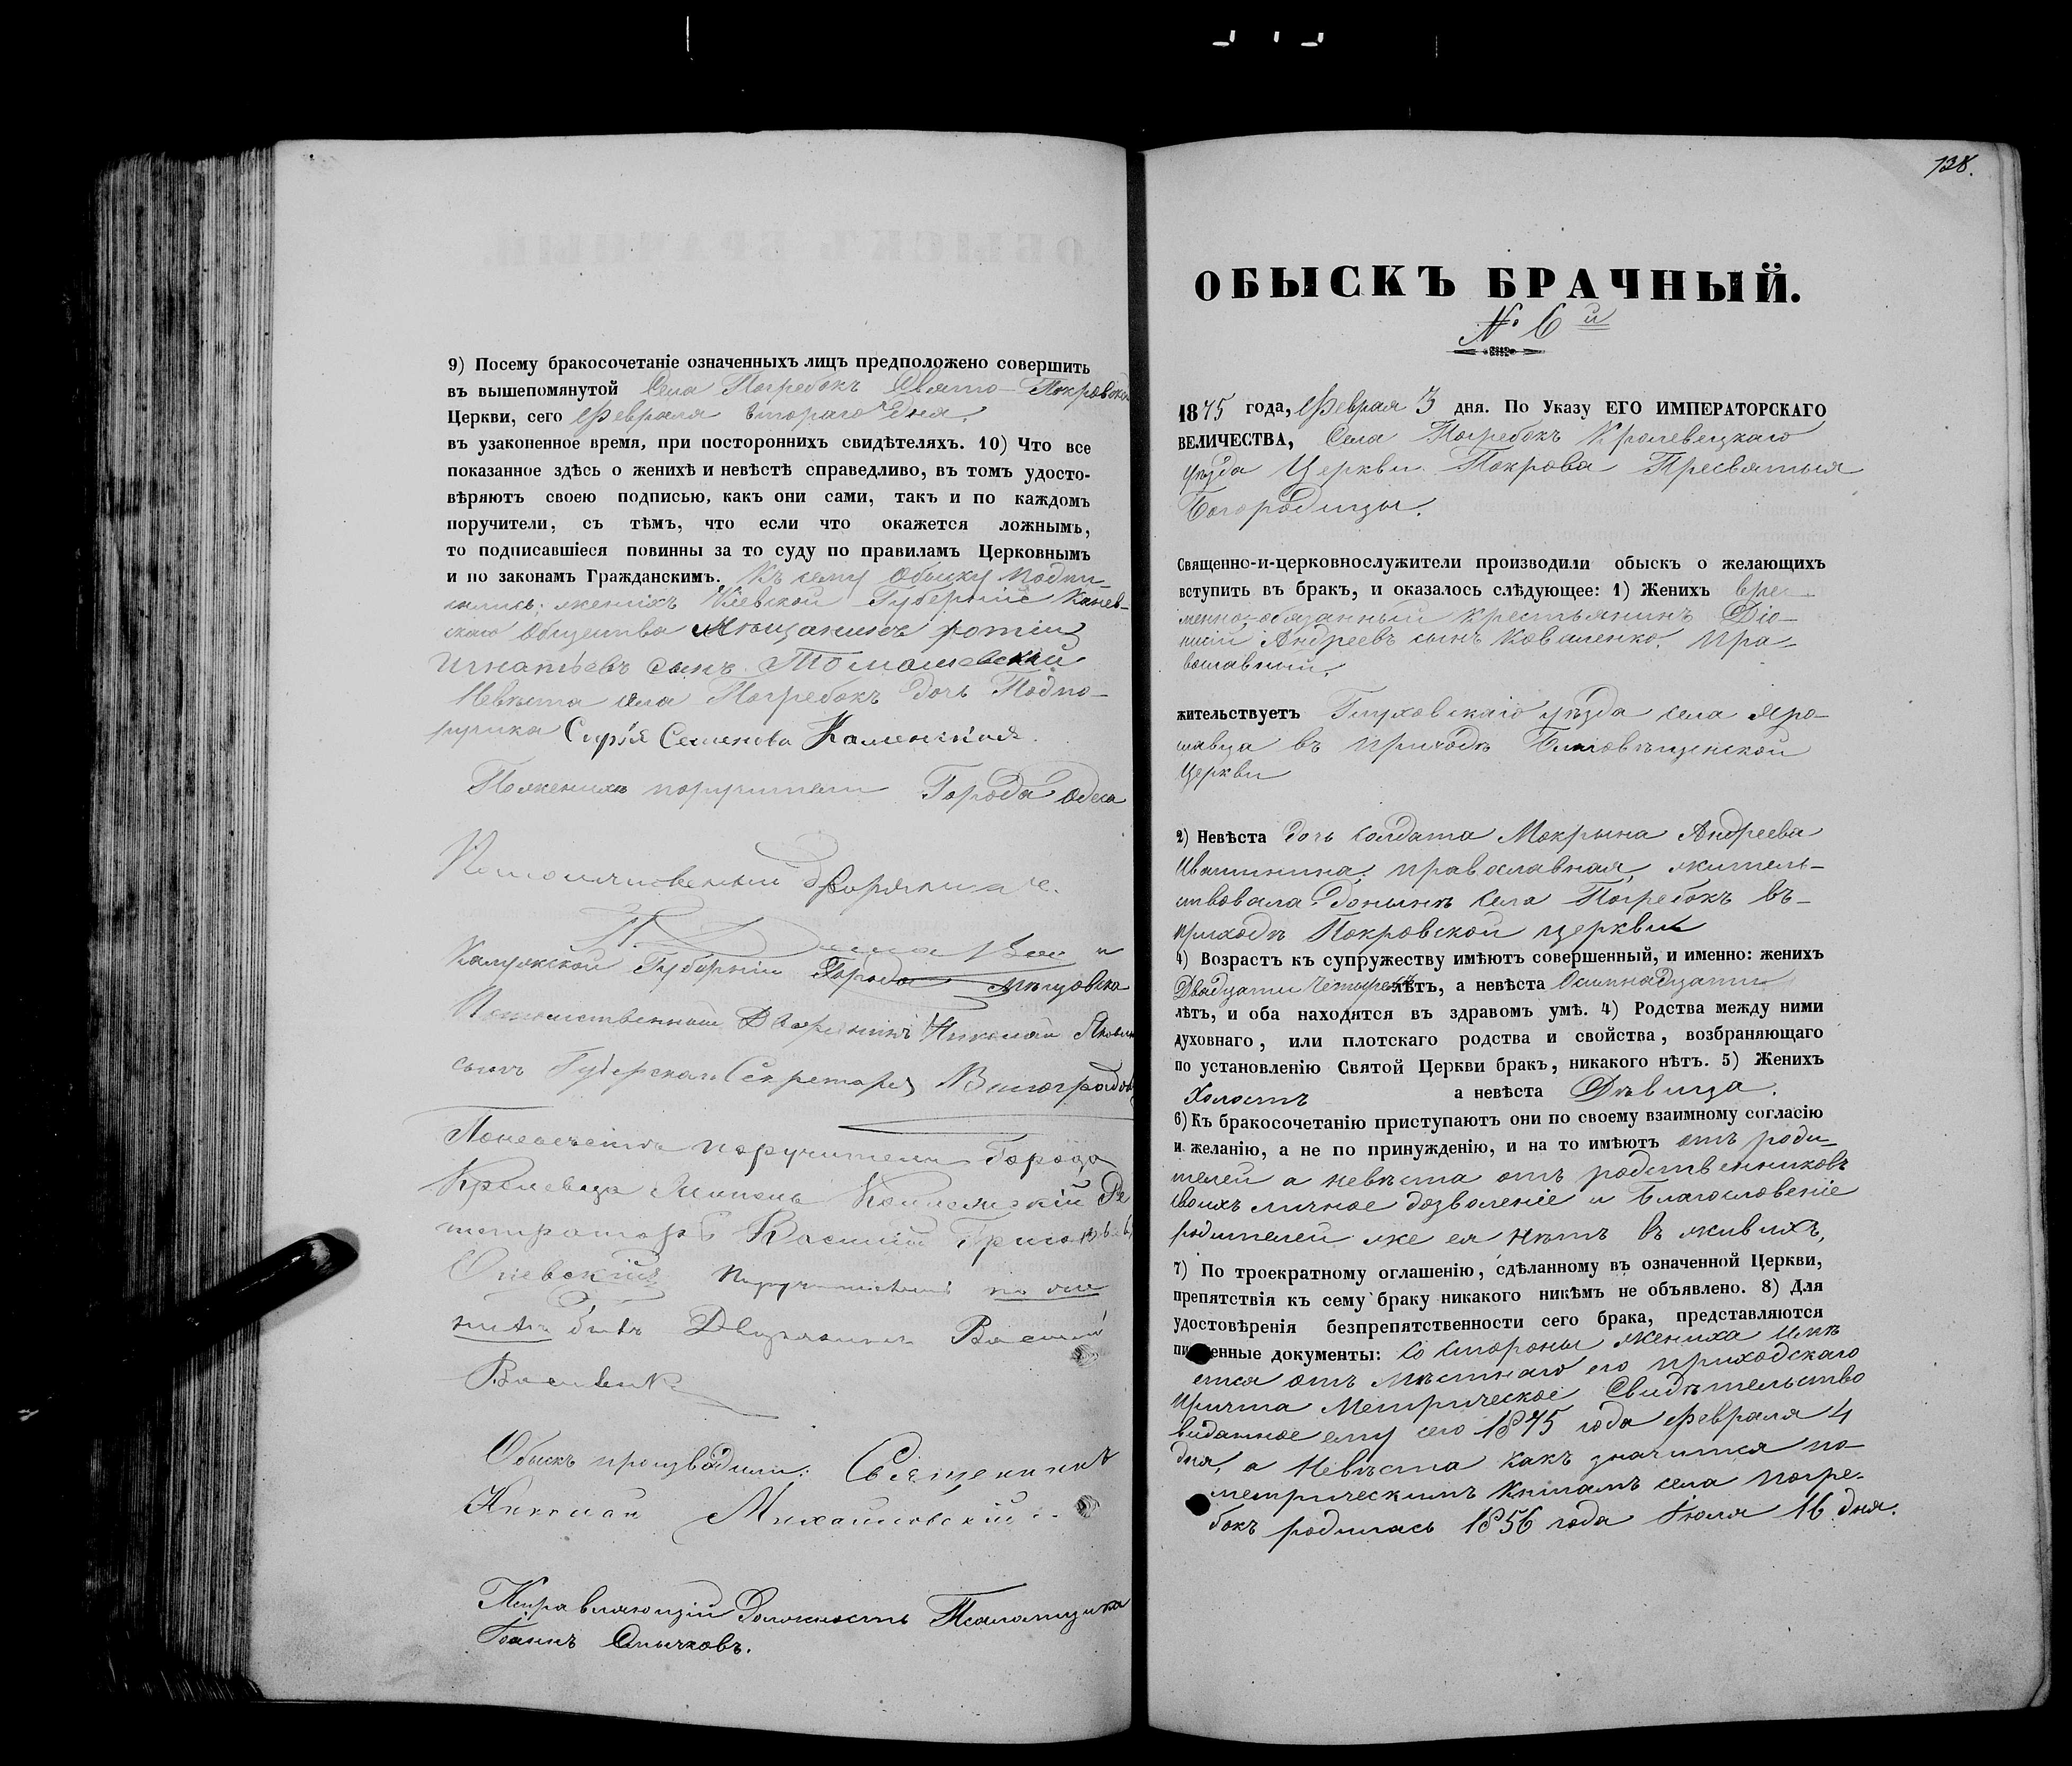 9) Посему бракосочетаніе означенныхъ лицъ предположено совершить
въ вышепомянутой Села Погребокъ Свято-Покровской
Церкви, сего Февраля втораго дня,
въ узаконенное время, при постороннихъ свидѣтеляхъ. 10) Что все
показанное здѣсь о женихѣ и невѣстѣ справедливо, въ томъ удосто-
вѣряютъ своею подписью, какъ они сами, такъ и по каждомъ
поручители, съ тѣмъ, что если что окажется ложнымъ,
то подписавшіеся повинны за то суду по правиламъ Церковнымъ
и по законамъ Гражданскимъ. Къ сему обыску подпи-
сались: женихъ Кіевской Губерніи Канев-
скаго Общества Мѣщанинъ Фотій
Игнатьевъ сынъ Томашевскій
Невѣста села Погребокъ дочь Подпо-
ручика Софія Семенова Каменская.
По женихѣ поручители Города Одеса
Потомственный дворянинъ
Калужской Губерніи Города Мещовска
Потомственный Дворянинъ Николай
сынъ Секретарь Виноградовъ
По невѣстѣ поручители Города
Кролевца Коллежскій Ре
гистраторъ Василій
Огіевскій
быть Дворянинъ Василій
Обыскъ производили: Священникъ
Николай Михайловскій
Исправляющій Должность Псаломщика
Іоаннъ Смычковъ.
138.
ОБЫСКЪ БРАЧНЫЙ.
№ 6й
1875 года, Февраля 3 дня. По Указу ЕГО ИМПЕРАТОРСКАГО
ВЕЛИЧЕСТВА, Села Погребокъ Кролевецкаго
уѣзда Церкви Покрова Пресвятыя
Богородицы.
Священно-и-церковнослужители производили обыскъ о желающихъ
вступить въ бракъ, и оказалось слѣдующее: 1) Женихъ вре-
менно-обязанный крестьянинъ Діо-
нисій Андреевъ сынъ Коваленко, Пра-
вославный,
жительствуетъ Глуховскаго уѣзда села Яро-
славца въ приходѣ Благовѣщенской
Церкви
2) Невѣста дочь солдата Мокрына Андреева
Ивашинина, православная, житель-
ствовала донынѣ села Погребокъ въ-
приходѣ Покровской церкви
4) Возрастъ къ супружеству имѣютъ совершенный, и именно: женихъ
Двадцати четырехъ лѣтъ, а невѣста Осьмнадцати
лѣтъ, и оба находятся въ здравомъ умѣ. 4) Родства между ними
духовнаго, или плотскаго родства и свойства, возбраняющаго
по установленію Святой Церкви бракъ, никакого нѣтъ. 5) Женихъ
Холостъ а невѣста Дѣвица.
6) Къ бракосочетанію приступаютъ они по своему взаимному согласію
и желанію, а не по принужденію, и на то имѣютъ отъ роди-
телей а невѣста отъ родственниковъ
своихъ личное дозволеніе и благословеніе
родителей же ея нѣтъ въ живихъ,
7) По троекратному оглашенію, сдѣланному въ означенной Церкви,
препятствія къ сему браку никакого никѣмъ не объявлено. 8) Для
удостовѣренія безпрепятственности сего брака, представляются
письменные документы: со стороны жениха имѣ
ется отъ мѣстнаго его приходскаго
причта Метрическое Свидѣтельство
виданное ему сего 1875 года февраля 4
дня, а Невѣста какъ значится по
метрическимъ книгамъ села Погре-
бокъ родилась 1856 года Іюля 16 дня.